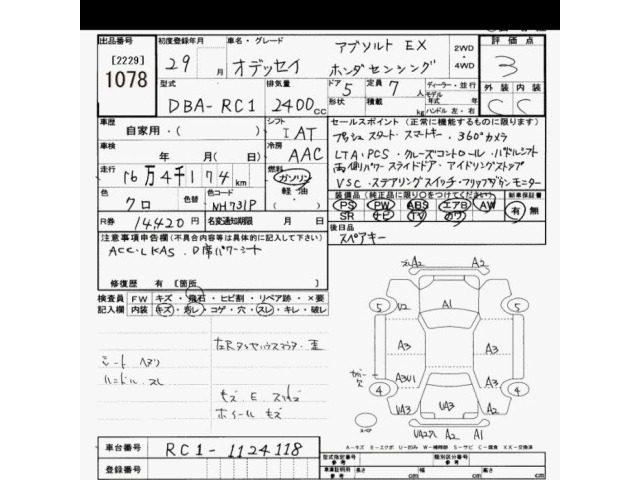 出品番号 初度登録年月 車名・グレード アブソルト EX 2WD 評価点
[2229] 29 月 オデッセイ ホンダセンシング 4WD 3
1078 型式 排気量 ドア 5 定員 7 人 ディーラー・並行 外装 内装
DBA-RC1 2400 cc 形状 積載 kg モデル 年式 年 C C
ハンドル 左・右
車歴 自家用・( ) シフト IAT セールスポイント(正常に機能するものに限ります)
プッシュスタート・スマートキー・360°カメラ
車検 年 月(日) 冷房 AAC LTA・PCS・クルーズコントロール・パドルシフト
走行 16万4千174 km 燃料 ガソリン 両側パワースライドドア・アイドリングストップ
軽油 VSC・ステアリングスイッチ・フリップダウンモニター
色 クロ 色替 色コード NH731P 装備品(純正品に限り○をつけてください) 新車保証書
PS PW ABS エアB AW 有 無
R券 14420 円 名変通知期限 月 日 SR ナビ TV カワ
注意事項申告欄(不具合内容等は具体的に記入して下さい) 後日品
ACC・LKAS・D席パワーシート スペアキー
修復歴 有 [箇所 ]
検査員 FW キズ・飛石・ヒビ割・リペア跡・×要
記入欄 内装 キズ・汚レ・コゲ・穴・スレ・キレ・破レ
A2 A2
5 U2 A1 5
A3 A3 A3
シート ヘタリ
ハンドル スレ
4 A3U1 A3 4
キズ・E・
ホイールキズ
UA3 UA3 A2
スペア A2 A1
A-キズ E-エクボ U-凹み W-補修跡 S-サビ C-腐食 XX-交換済
車台番号 RC1-1124118
登録番号
型式指定番号 参考 類別区分番号 参考
車両証明用 参考 長さ cm 幅 cm 高さ cm